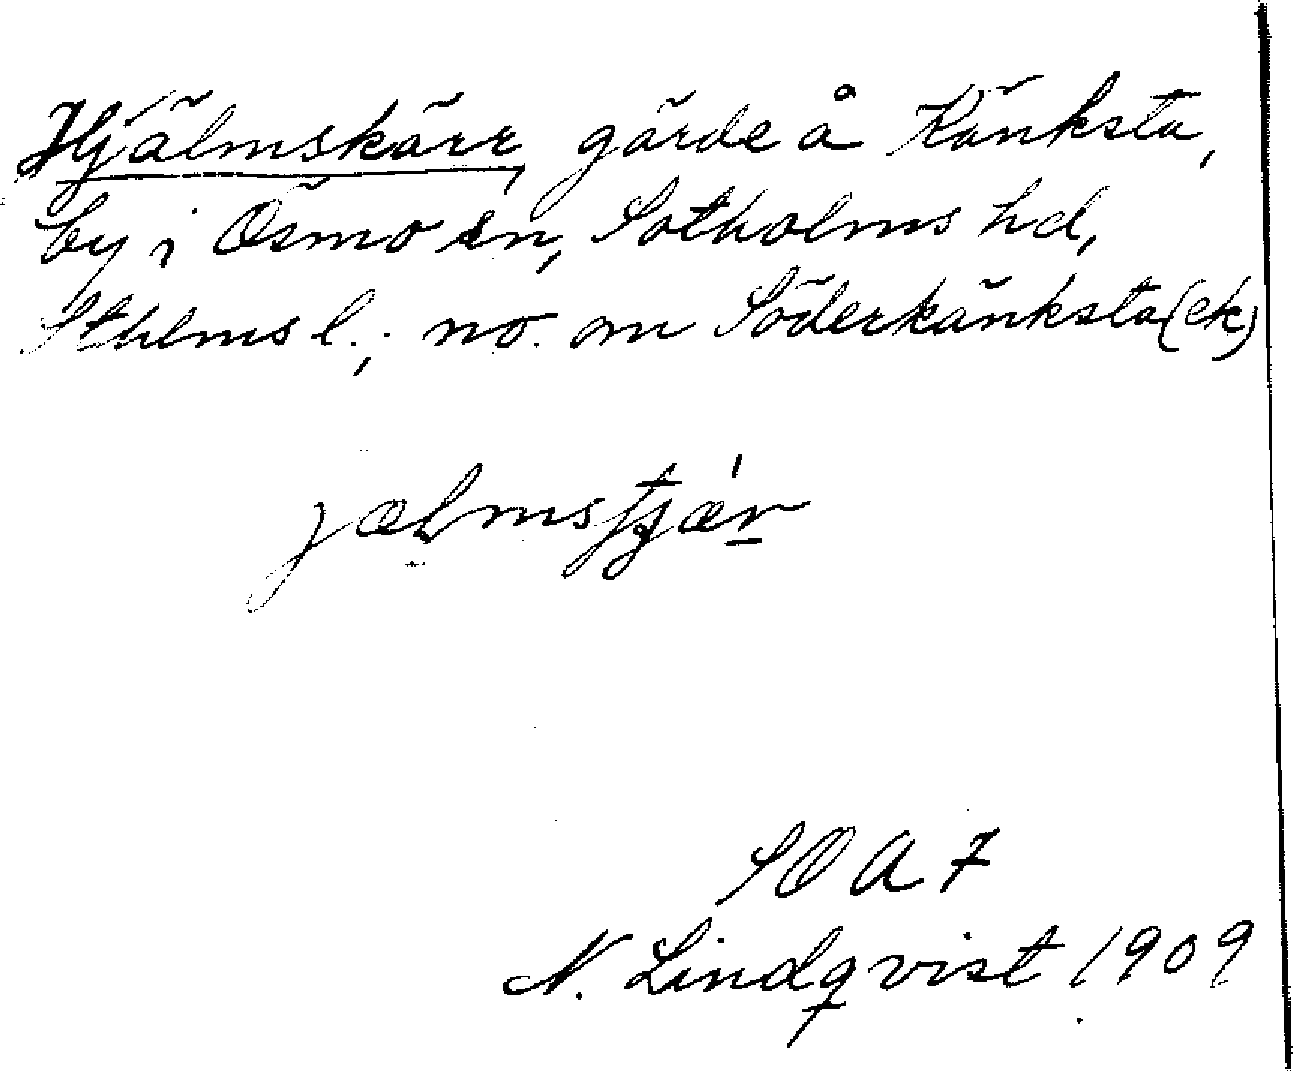 Hjälmskärr, gärde å Känksta,
by i Ösmo sn, Sotholms hd,
Sthlms l.; no. om Söderkänksta (ek)
SOA 7
N. Lindqvist 1909